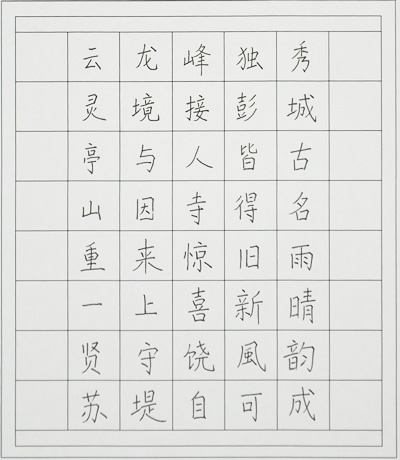 云龙峰独秀
灵境接彭城
亭与人皆古
山因寺得名
重来惊旧雨
一上喜新晴
贤守饶風韵
苏堤自可成